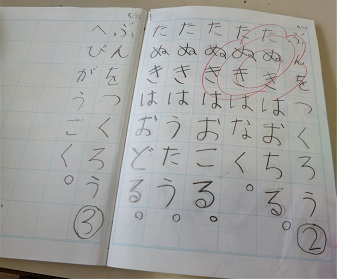 ぶんをつくろう②
たぬきはおちる。
たぬきはなく。
たぬきはおこる。
たぬきはうたう。
たぬきはおどる。
ぶんをつくろう③
へびがうごく。